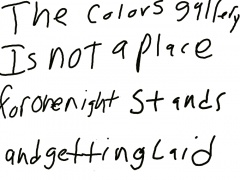 The Colors gallery
Is not a place
for one night stands
and getting Laid